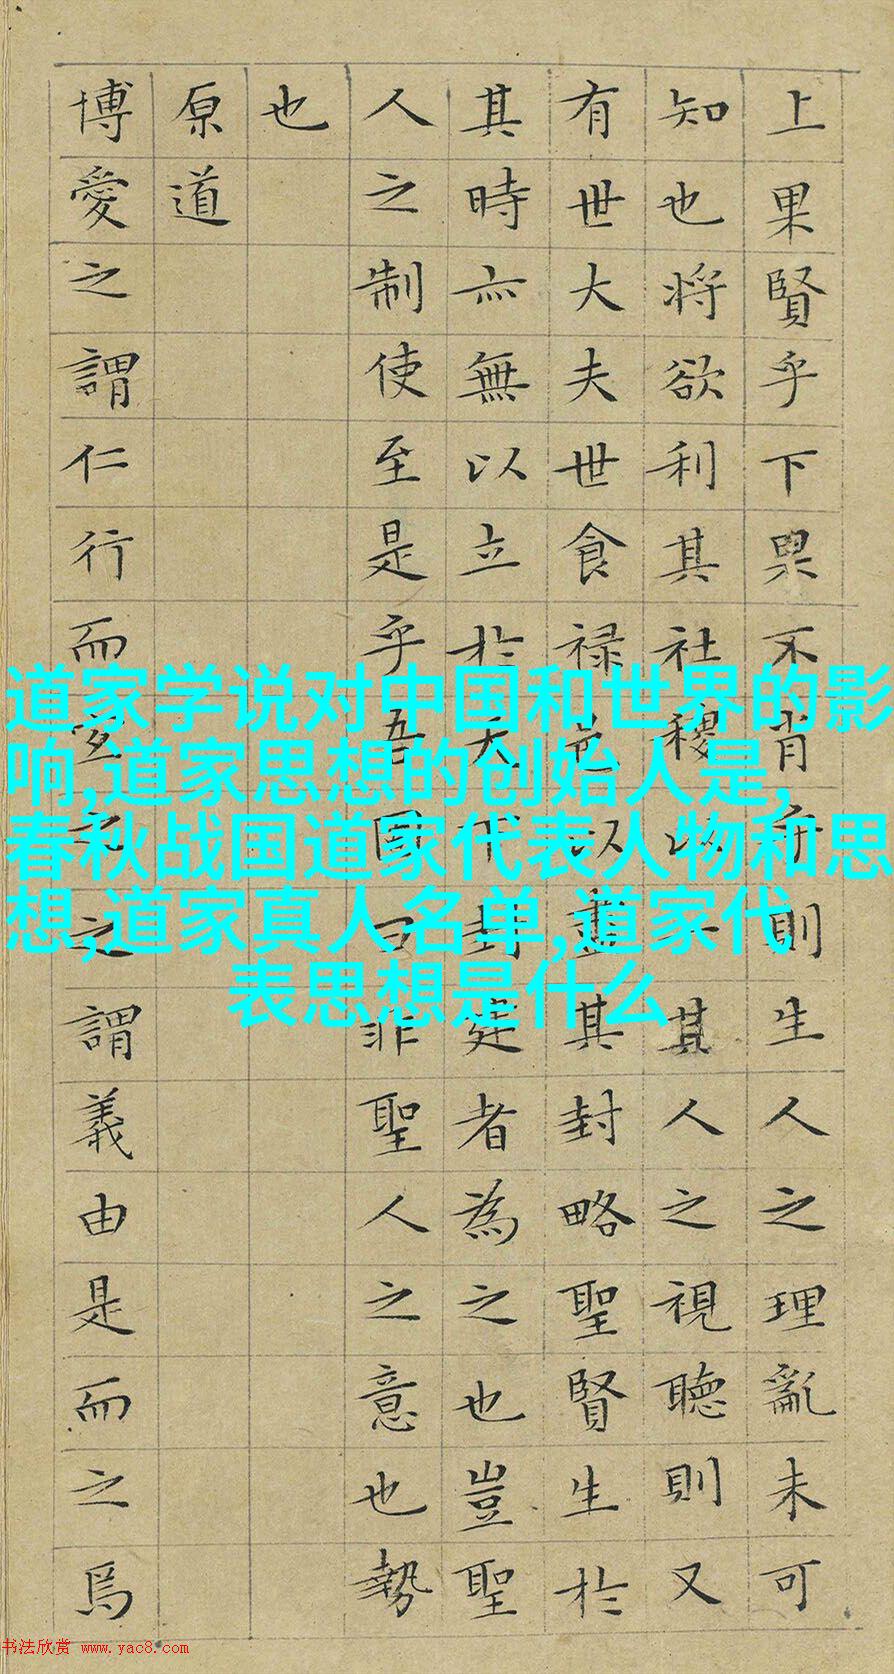 上果賢乎下果不肖乎則生人之理亂未可
知也將欲利其社稷以一其人之視聽則又
有世大夫世食禄邑以盡其封略聖賢生於
其時亦無以立於天下封建者為之也豈聖
人之制使至是乎吾固曰非聖人之意也勢
也
原道
博愛之謂仁行而宜之之謂義由是而之焉
道家学说对中国和世界的影
响,道家思想的创始人是,
春秋战国道家代表人物和思
想,道家真人名单,道家代
表思想是什么
书法欣赏 www.yac8.com